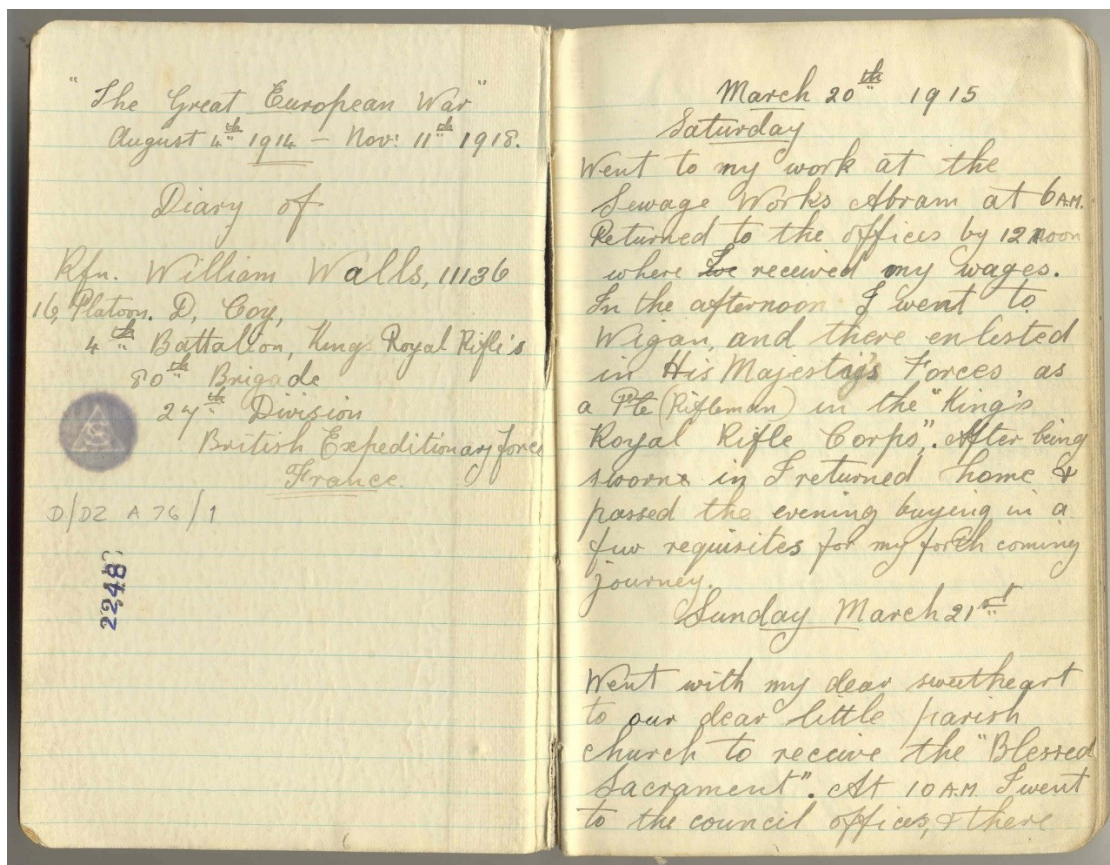 "The Great European War"
August 4th 1914 – Nov: 11th 1918.
Diary of
Rfn. William Walls, 11136
16, Platoon. D, Coy,
4th Battalion, Kings Royal Rifle's
80th Brigade
27th Division
British Expeditionary force
France.
D/DZ A 76/1
2248
March 20th 1915
Saturday
Went to my work at the
Sewage Works Abram at 6 A.M.
Returned to the offices by 12 noon
where I received my wages.
In the afternoon I went to
Wigan, and there enlested
in His Majesty's Forces as
a Pte (Rifleman) in the "King's
Royal Rifle Corps". After being
sworn in I returned home &
passed the evening buying in a
few requisites for my forth coming
journey.
Sunday March 21st
Went with my dear sweetheart
to our dear little parish
church to receive the "Blessed
Sacrament". At 10 A.M. I went
to the council offices, & there